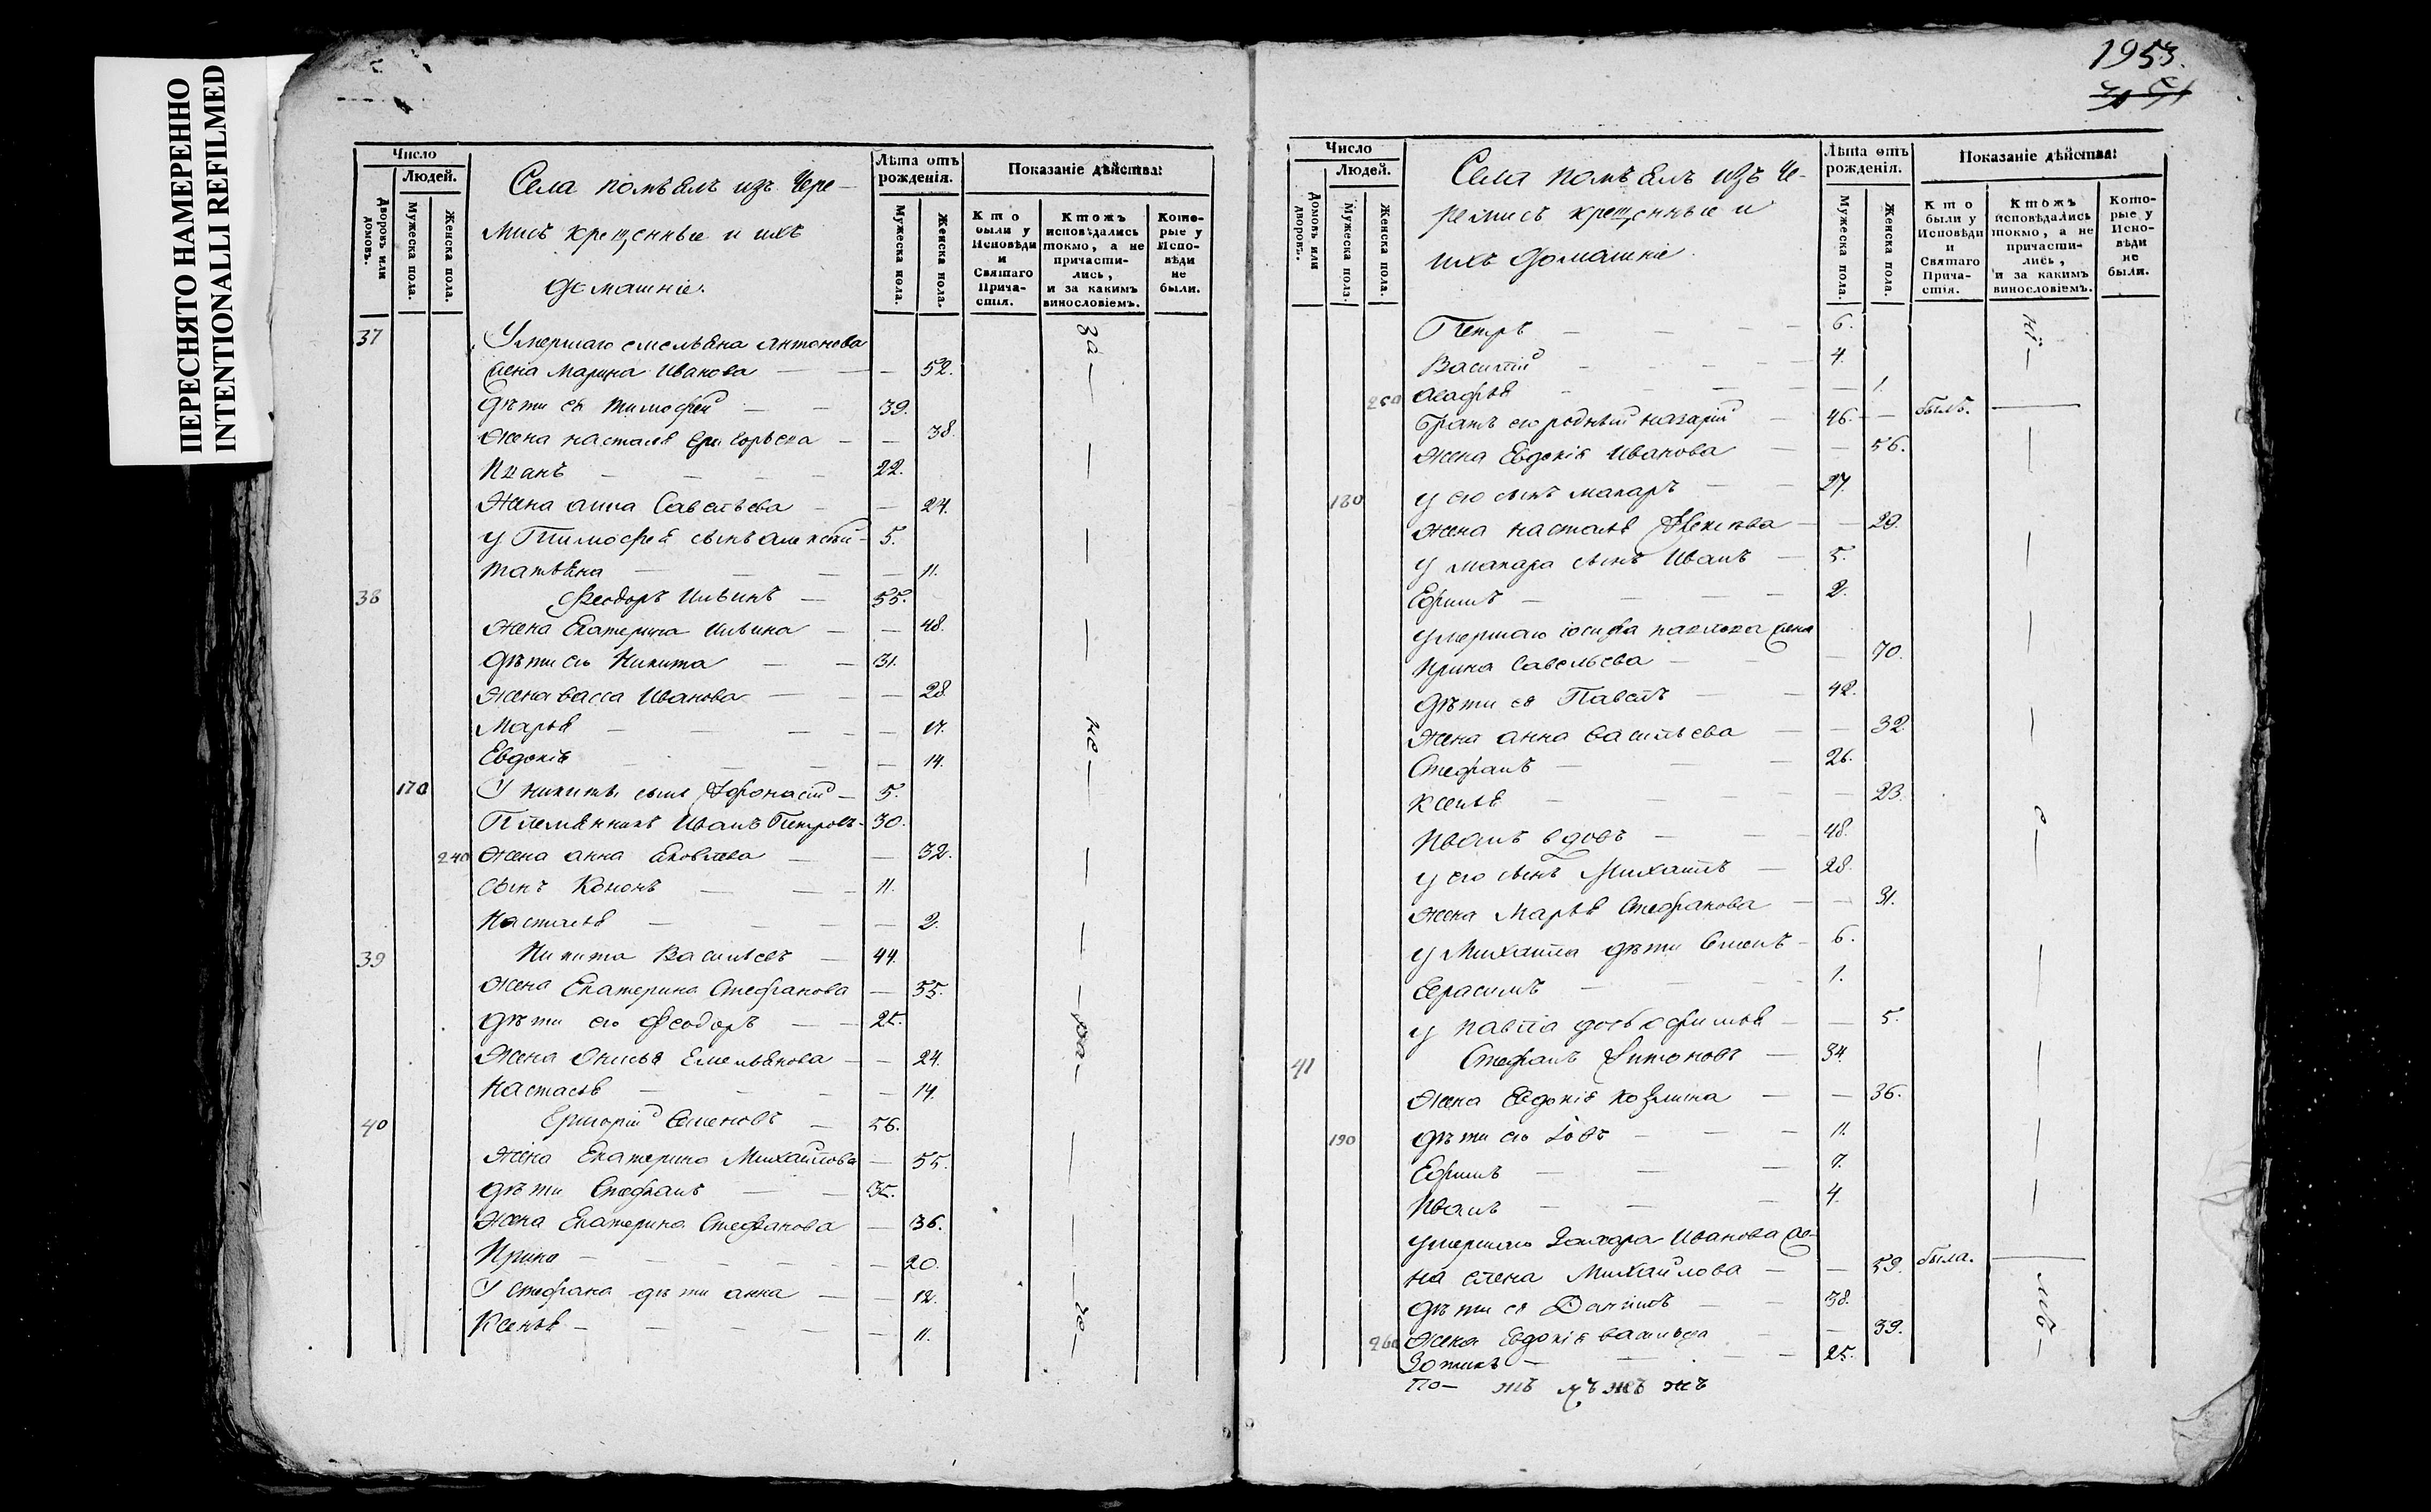 ПЕРЕСНЯТО НАМЕРЕННО
INTENTIONALLI REFILMED
Число
Людей.
Дворовъ или домовъ.
Мужеска пола.
Женска пола.
Села помъялъ изъ Чере-
мисъ крещенные и ихъ
домашніе.
Лѣта отъ рожденія.
Мужеска пола.
Женска пола.
Показаніе дѣйства:
Кто были у Исповѣди и Святаго Причастія.
Ктожъ исповѣдались токмо, а не причастились, и за какимъ винословіемъ.
Которые у Исповѣди не были.
37 Умершаго емельяна антонова
жена марина Иванова — 52.
дѣти ея тимофей — 39.
жена настасья григорьева — 38.
Иванъ — 22.
жена анна Савельева — 24.
у Тимофея сынъ алексѣй — 5.
татьяна — 11.
38 Феодоръ Ильинъ — 55.
жена Екатерина Ильина — 48.
дѣти его Никита — 31.
жена васса Иванова — 28.
Марья — 17.
Евдокія — 14.
170 У никиты сынъ Афонасій — 5.
Племянникъ Иванъ Петровъ — 30.
240 жена анна яковлева — 32.
сынъ Кононъ — 11.
Настасья — 2.
39 Никита Васильевъ — 44.
жена Екатерина Стефанова — 55.
дѣти его Феодоръ — 25.
жена Анисья Емельянова — 24.
настасья — 14.
40 Григорій Семеновъ — 56.
жена Екатерина Михайлова — 55.
дѣти Стефанъ — 35.
жена Екатерина Стефанова — 36.
Ирина — 20.
У Стефана дѣти анна — 12.
Ксенья — 11.
за — не — ра — че —
1953.
Число
Людей.
Домовъ или дворовъ.
Мужеска пола.
Женска пола.
Села помъялъ изъ Че-
ремисъ крещенные и
ихъ домашніе.
Лѣта отъ рожденія.
Мужеска пола.
Женска пола.
Показаніе дѣйства:
Кто были у Исповѣди и Святаго Причастія.
Ктожъ исповѣдались токмо, а не причастились, и за какимъ винословіемъ.
Которые у Исповѣди не были.
Петръ — 6.
Василій — 4.
250 агафья — 1.
братъ его родный назарій — 46. — былъ.
жена Евдокія Иванова — 56.
180 у его сынъ макаръ — 27.
жена настасья — 29.
у макара сынъ Иванъ — 5.
Ефимъ — 2.
умершаго іосифа павлова жена
Ирина Савельева — 70.
дѣти ея Павелъ — 42.
жена анна васильева — 32.
Стефанъ — 26.
ксенья — 23.
Иванъ вдовъ — 48.
у его сынъ Михаилъ — 28.
жена Марья Стефанова — 31.
у Михаила дѣти Семенъ — 6.
Герасимъ — 1.
у павла дочь афимья — 5.
41 Стефанъ Антоновъ — 34.
жена Евдокія Козмина — 36.
190 дѣти его Іовъ — 11.
Ефимъ — 7.
Иванъ — 4.
умершаго Захара Иванова же-
на елена Михайлова — 59. была.
дѣти ея Даніилъ — 38.
260 жена Евдокія васильева — 39.
Зотикъ — 25.
ні — е — мъ —
По —